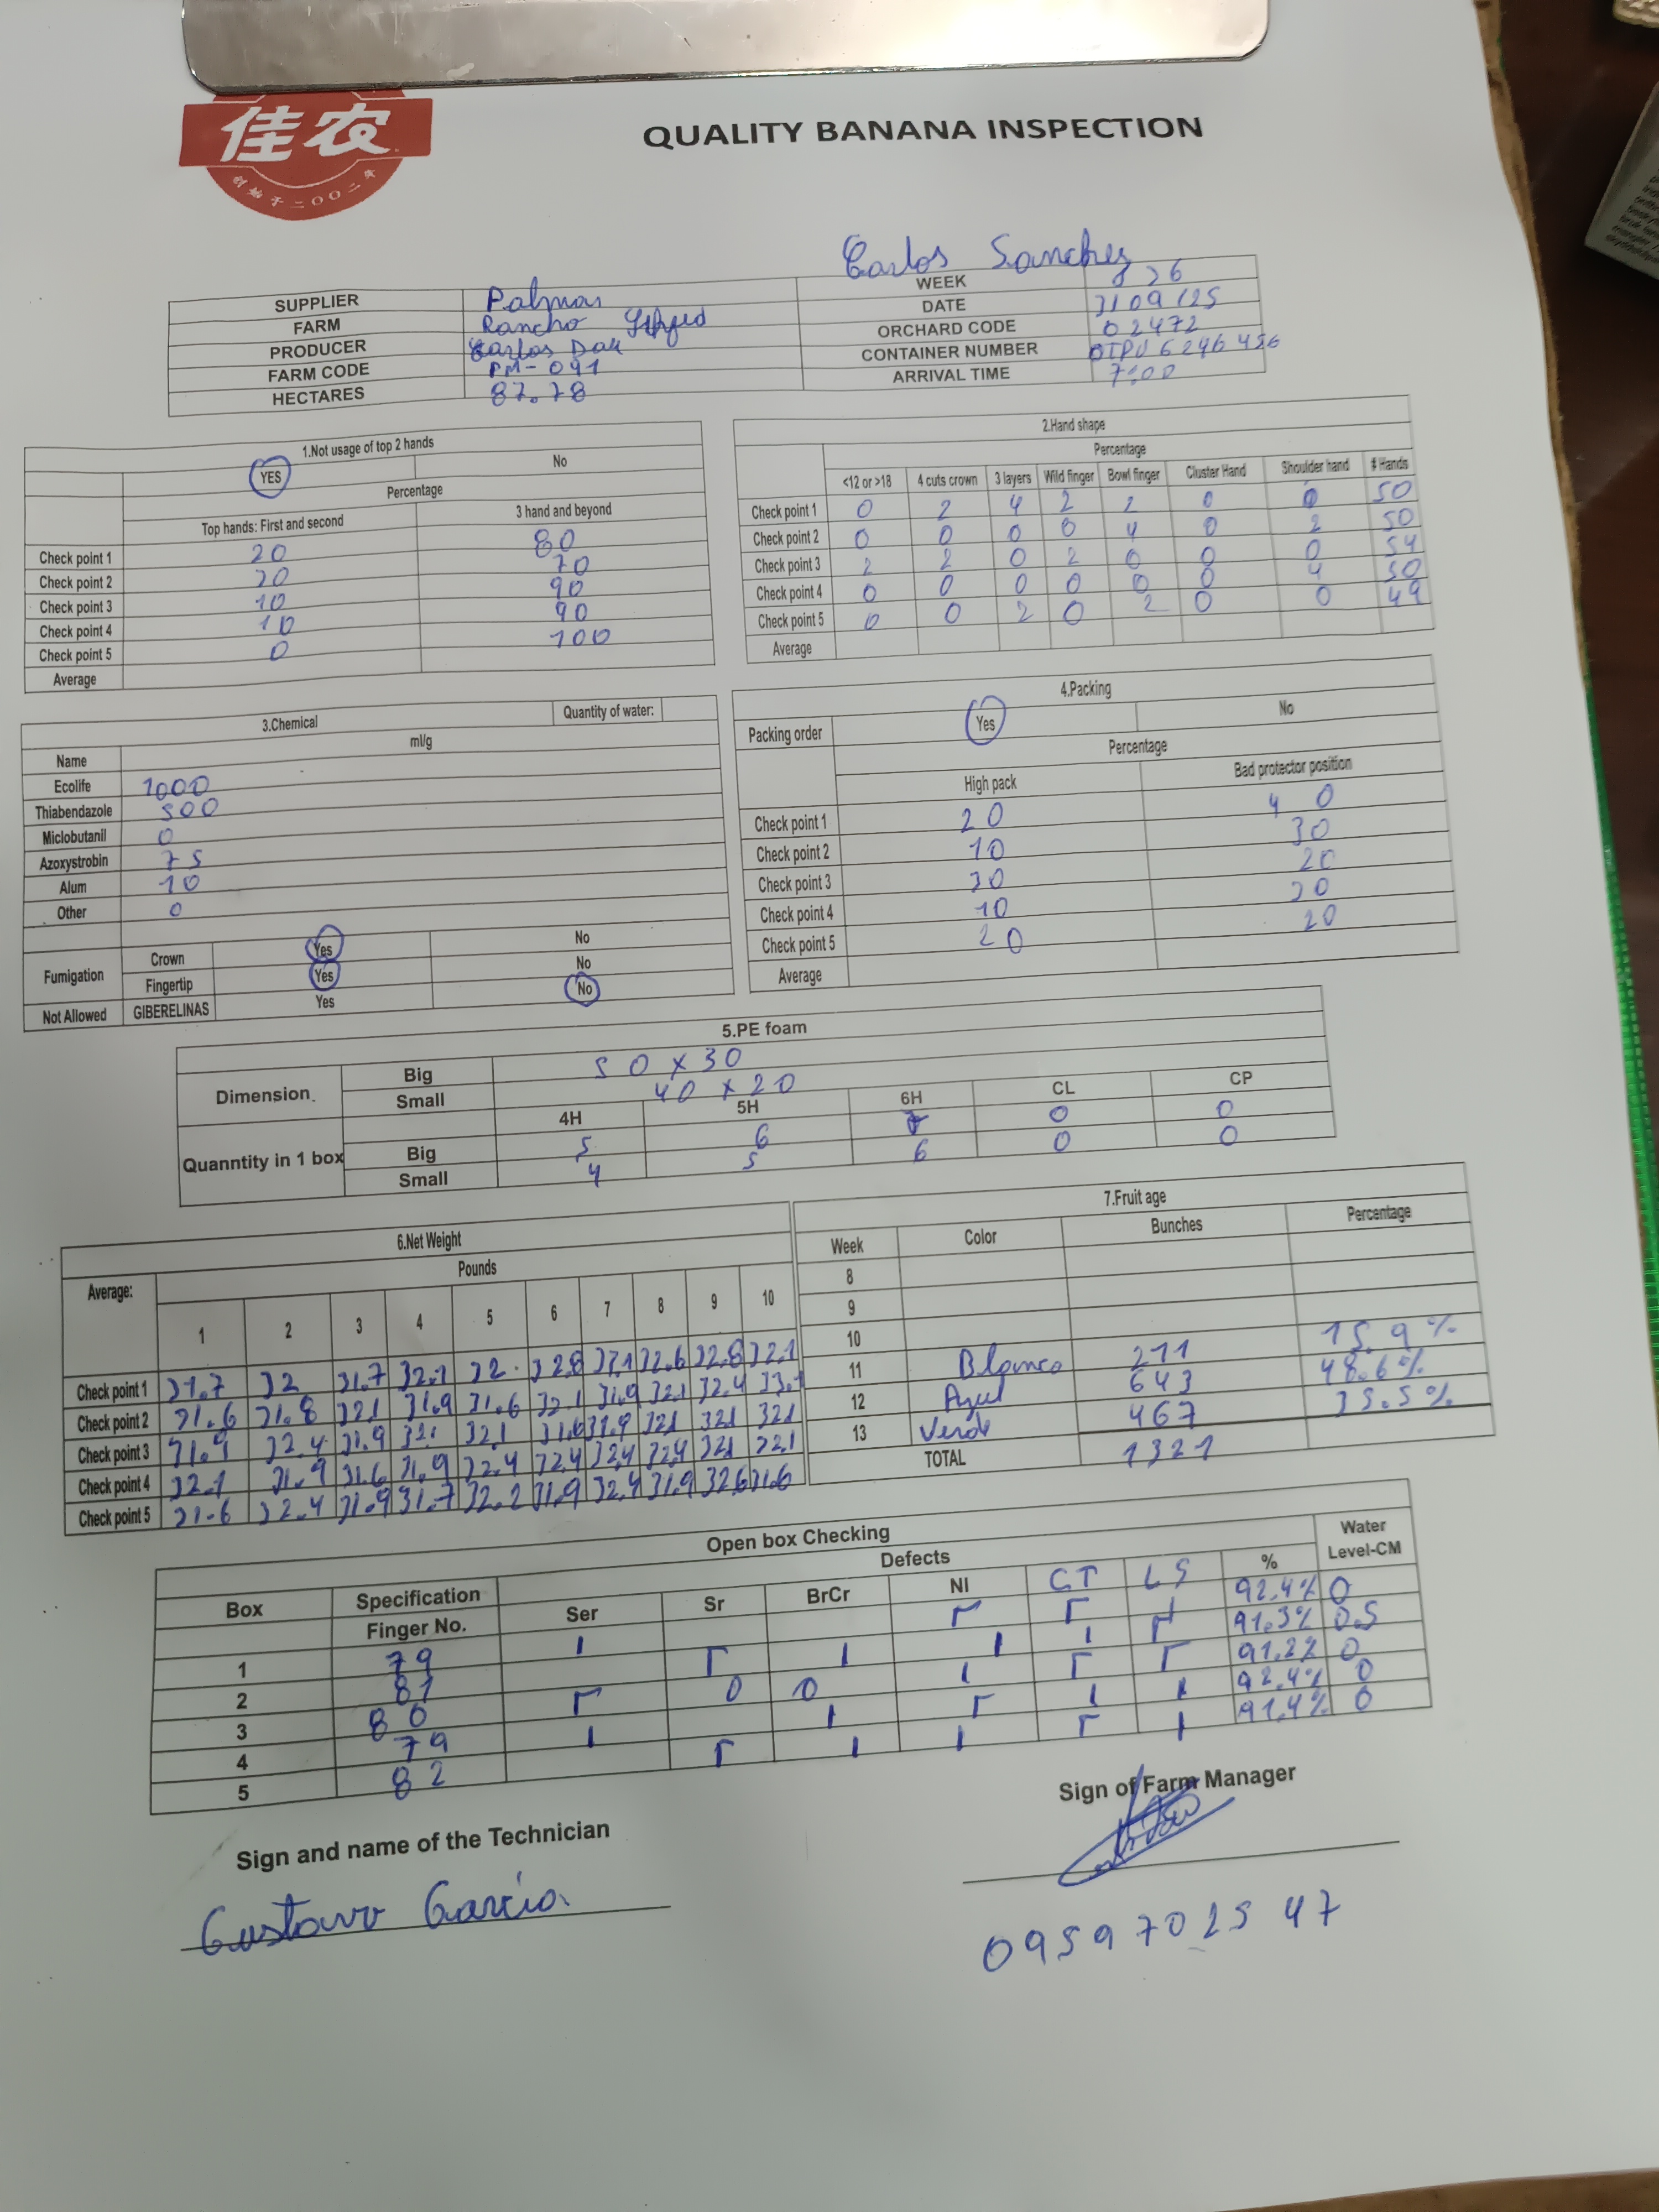 佳农
创始于二〇〇二年
QUALITY BANANA INSPECTION
Carlos Sanchez
SUPPLIER Palmar WEEK 826
FARM Rancho DATE 31 09 125
PRODUCER Carlos Dau ORCHARD CODE 02472
FARM CODE PM-091 CONTAINER NUMBER OTPU 6246456
HECTARES 87.78 ARRIVAL TIME 7:00
1.Not usage of top 2 hands
YES No
Percentage
Top hands: First and second 3 hand and beyond
Check point 1 20 80
Check point 2 30 70
Check point 3 10 90
Check point 4 10 90
Check point 5 0 100
Average
2.Hand shape
Percentage
<12 or >18 4 cuts crown 3 layers Wild finger Bowl finger Cluster Hand Shoulder hand # Hands
Check point 1 0 2 4 2 2 0 0 50
Check point 2 0 0 0 0 4 0 2 50
Check point 3 2 2 0 2 0 0 0 54
Check point 4 0 0 0 0 0 0 4 50
Check point 5 0 0 2 0 2 0 0 49
Average
3.Chemical Quantity of water:
Name ml/g
Ecolife 1000
Thiabendazole 500
Miclobutanil 0
Azoxystrobin 75
Alum 10
Other 0
Fumigation Crown Yes No
Fingertip Yes No
Not Allowed GIBERELINAS Yes No
4.Packing
Packing order Yes No
Percentage
High pack Bad protector position
Check point 1 20 40
Check point 2 10 30
Check point 3 30 20
Check point 4 10 30
Check point 5 20 20
Average
5.PE foam
Dimension. Big 50 x 30
Small 40 x 20
4H 5H 6H CL CP
Quanntity in 1 box Big 5 6 7 0 0
Small 4 5 6 0 0
6.Net Weight
Average: Pounds
1 2 3 4 5 6 7 8 9 10
Check point 1 31.7 32 31.7 32.1 32. 32.8 32.1 32.6 32.8 32.1
Check point 2 31.6 31.8 321 31.9 31.6 32.1 31.9 32.1 32.4 33.1
Check point 3 31.9 32.4 31.9 321 32.1 31.6 31.9 321 321 321
Check point 4 32.1 31.9 31.6 31.9 32.4 32.4 32.4 32.4 321 32.1
Check point 5 31.6 32.4 31.9 31.7 32.2 31.9 32.4 31.9 32.6 31.6
7.Fruit age
Week Color Bunches Percentage
8
9
10
11 Blanco 211 15.9%
12 Azul 643 48.6%
13 Verde 467 35.5%
TOTAL 1321
Open box Checking
Box Specification Defects % Water Level-CM
Finger No. Ser Sr BrCr NI CT LS
1 79 92.4% 0
2 81 91.3% 0.5
3 80 0 0 91.2% 0
4 79 92.4% 0
5 82 91.4% 0
Sign and name of the Technician
Gustavo Garcia
Sign of Farm Manager
0959702547